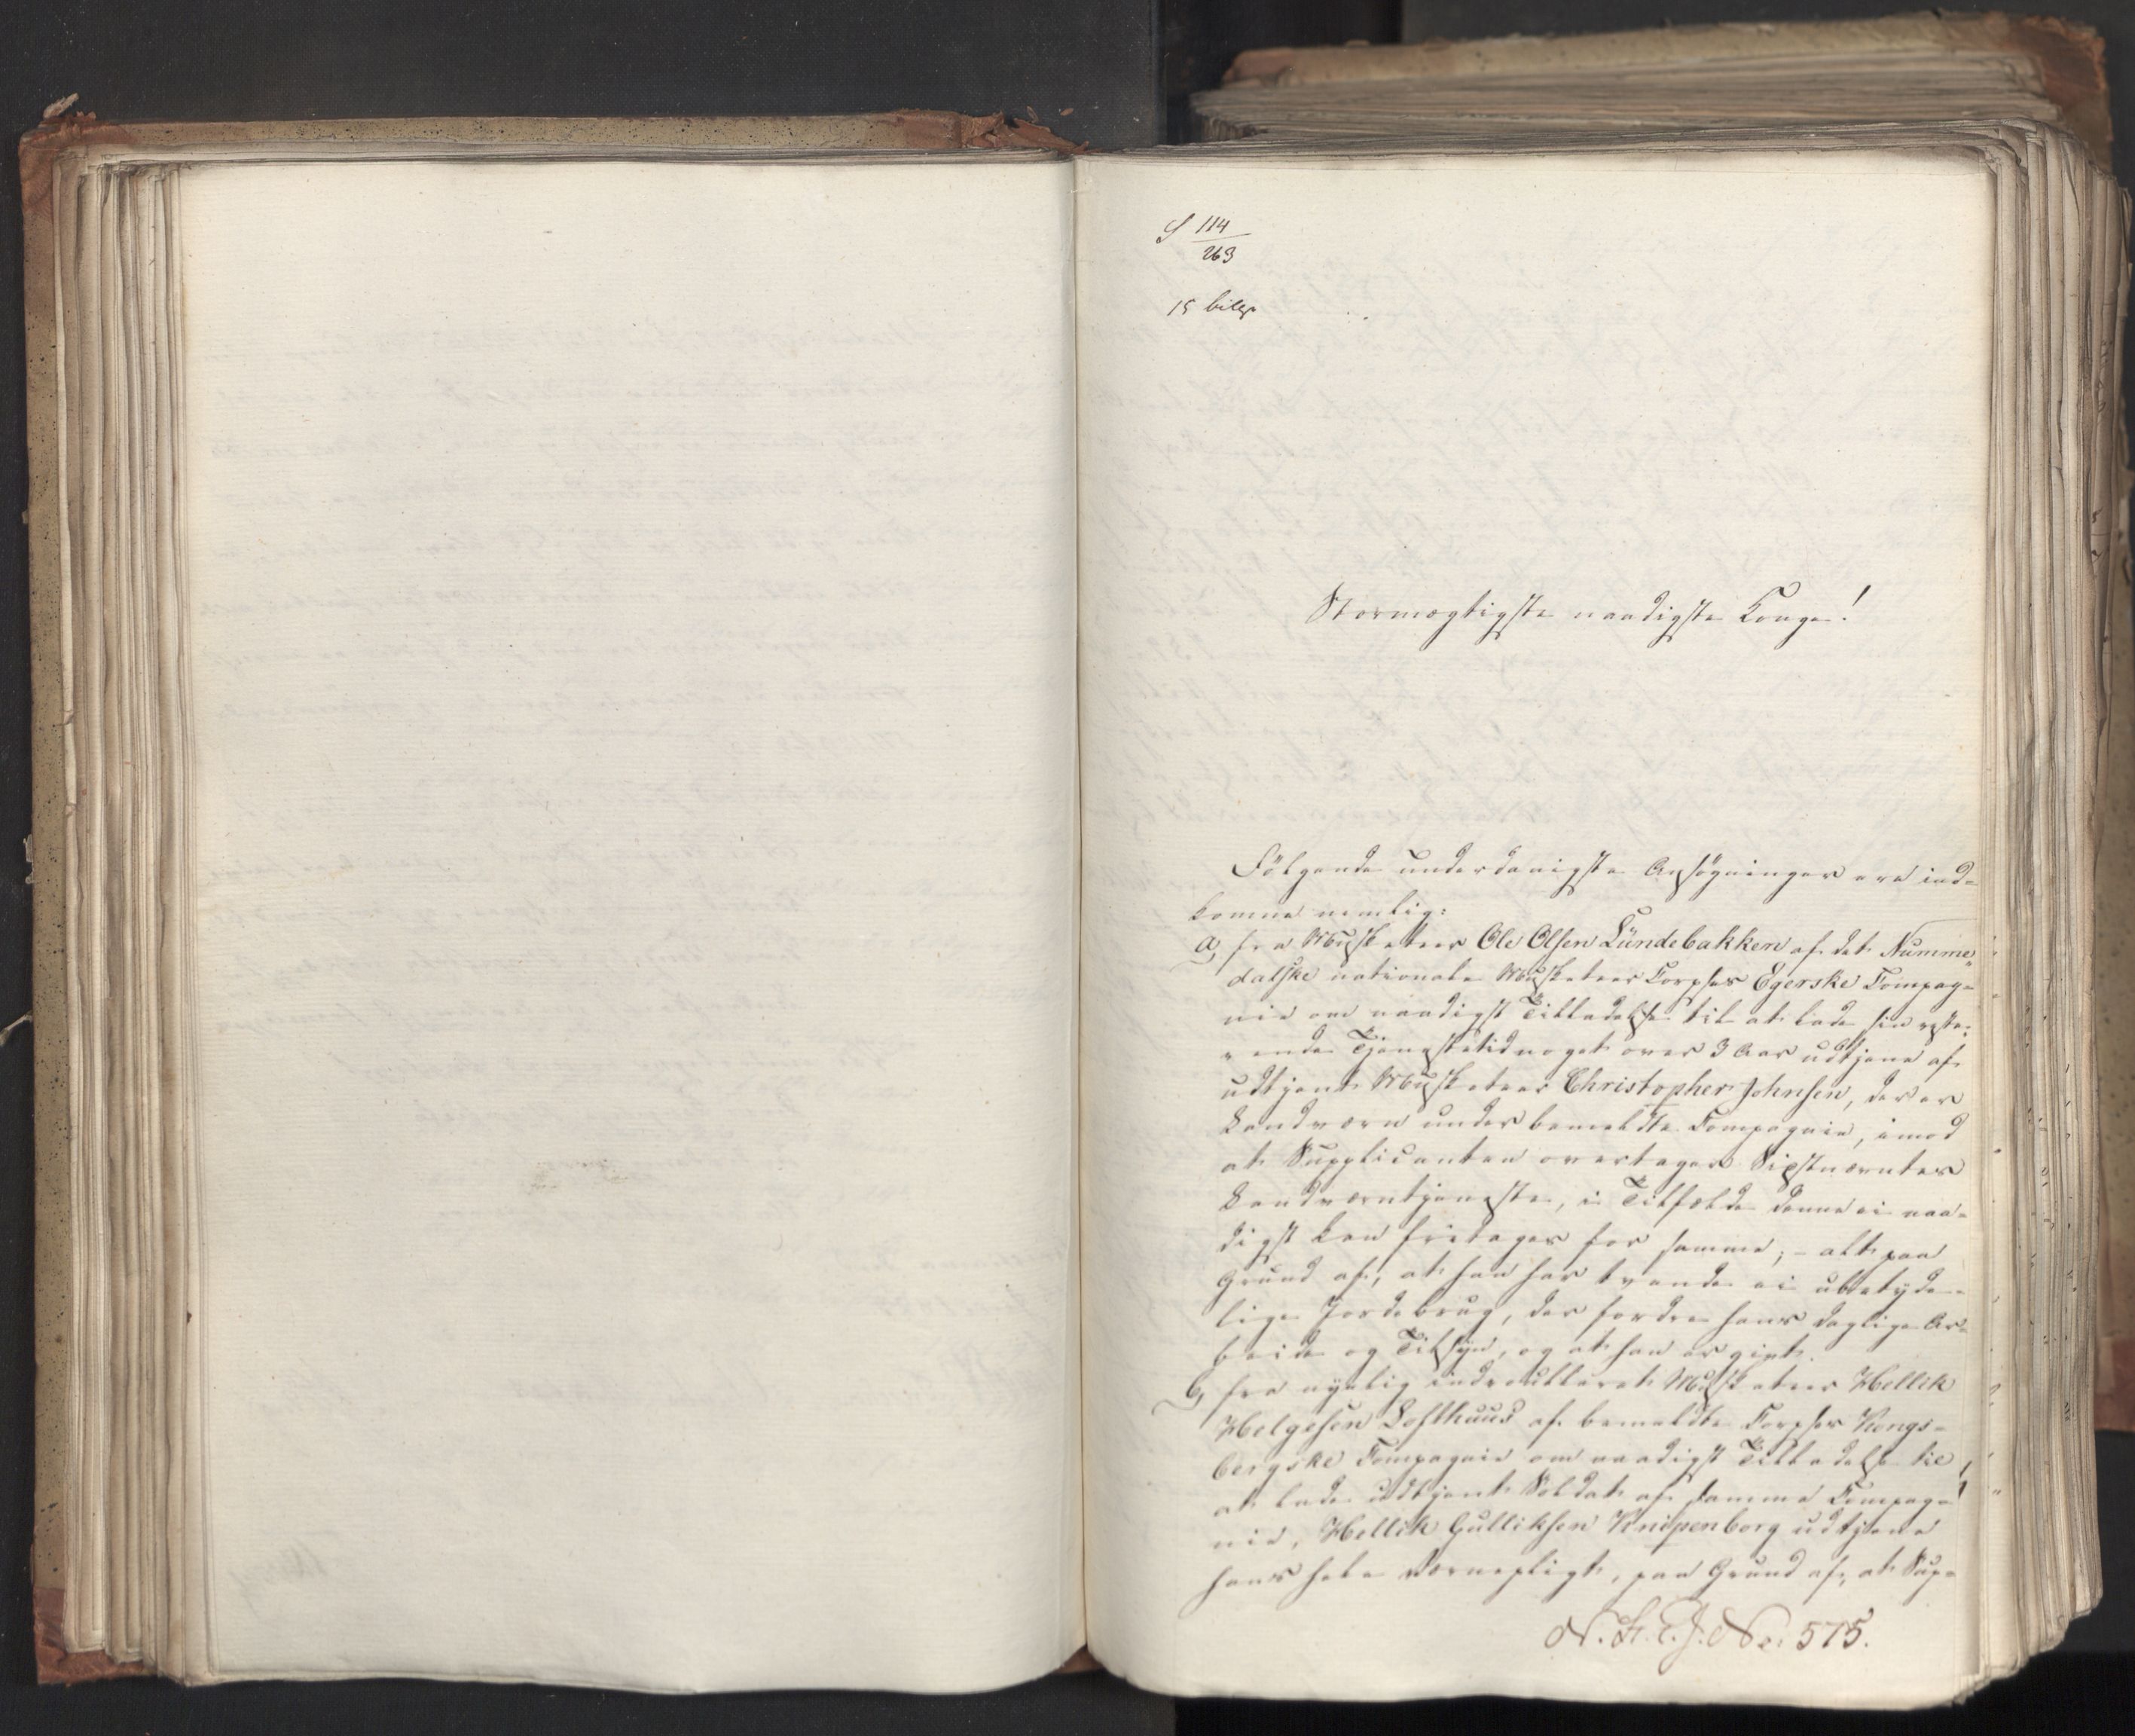 S 114
263
15 bilg
Stormægtigste naadigste Konge!
Følgende underdanigste Ansøgninger ere ind-
komne nemlig:
a, fra Musketeer Ole Olsen Lündebakken af det Numme-
dalske nationale Musketeer Corpses Egerske Compag-
nie om naadigst Tilladelse til at lade sin reste-
rende Tjenestetid noget over 3 Aar udtjene af
udtjent Musketeer Christopher Johnsen, der er
Landværn under bemeldte Compagnie, imod
at Supplicanten overtager Sidstnævntes
Landværntjeneste, i Tilfælde denne ei naa-
digst kan fritages for samme; - alt paa
Grund af, at han har tvende ei ubetyde-
lige Jordebrug, der fordre hans daglige Ar-
beide og Tilsyn, og at han er givt.
b, fra nyelig indroulleret Musketeer Hellik
Helgesen Lofthuus af bemeldte Corpses Kongs-
bergske Compagnie om naadigst Tilladelse til,
at lade udtjent Soldat af samme Compag-
nie, Hellik Gulliksen Knipenborg udtjene
hans hele Værnepligt, paa Grund af, at Sup-
No: 575.